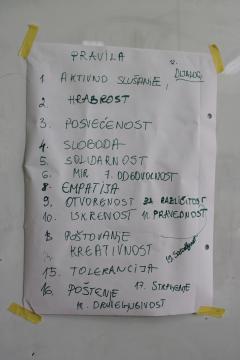 PRAVILA
1. AKTIVNO SLUŠANJE, 12. DIJALOG
2. HRABROST
3. POSVEĆENOST
4. SLOBODA
5. SOLIDARNOST
6. MIR 7. ODGOVORNOST
8. EMPATIJA
9. OTVORENOST ZA RAZLIČITOST
10. ISKRENOST 11. PRAVEDNOST
13. POŠTOVANJE
14. KREATIVNOST
15. TOLERANCIJA
16. POŠTENJE 17. STRPLJENJE
18.
19.